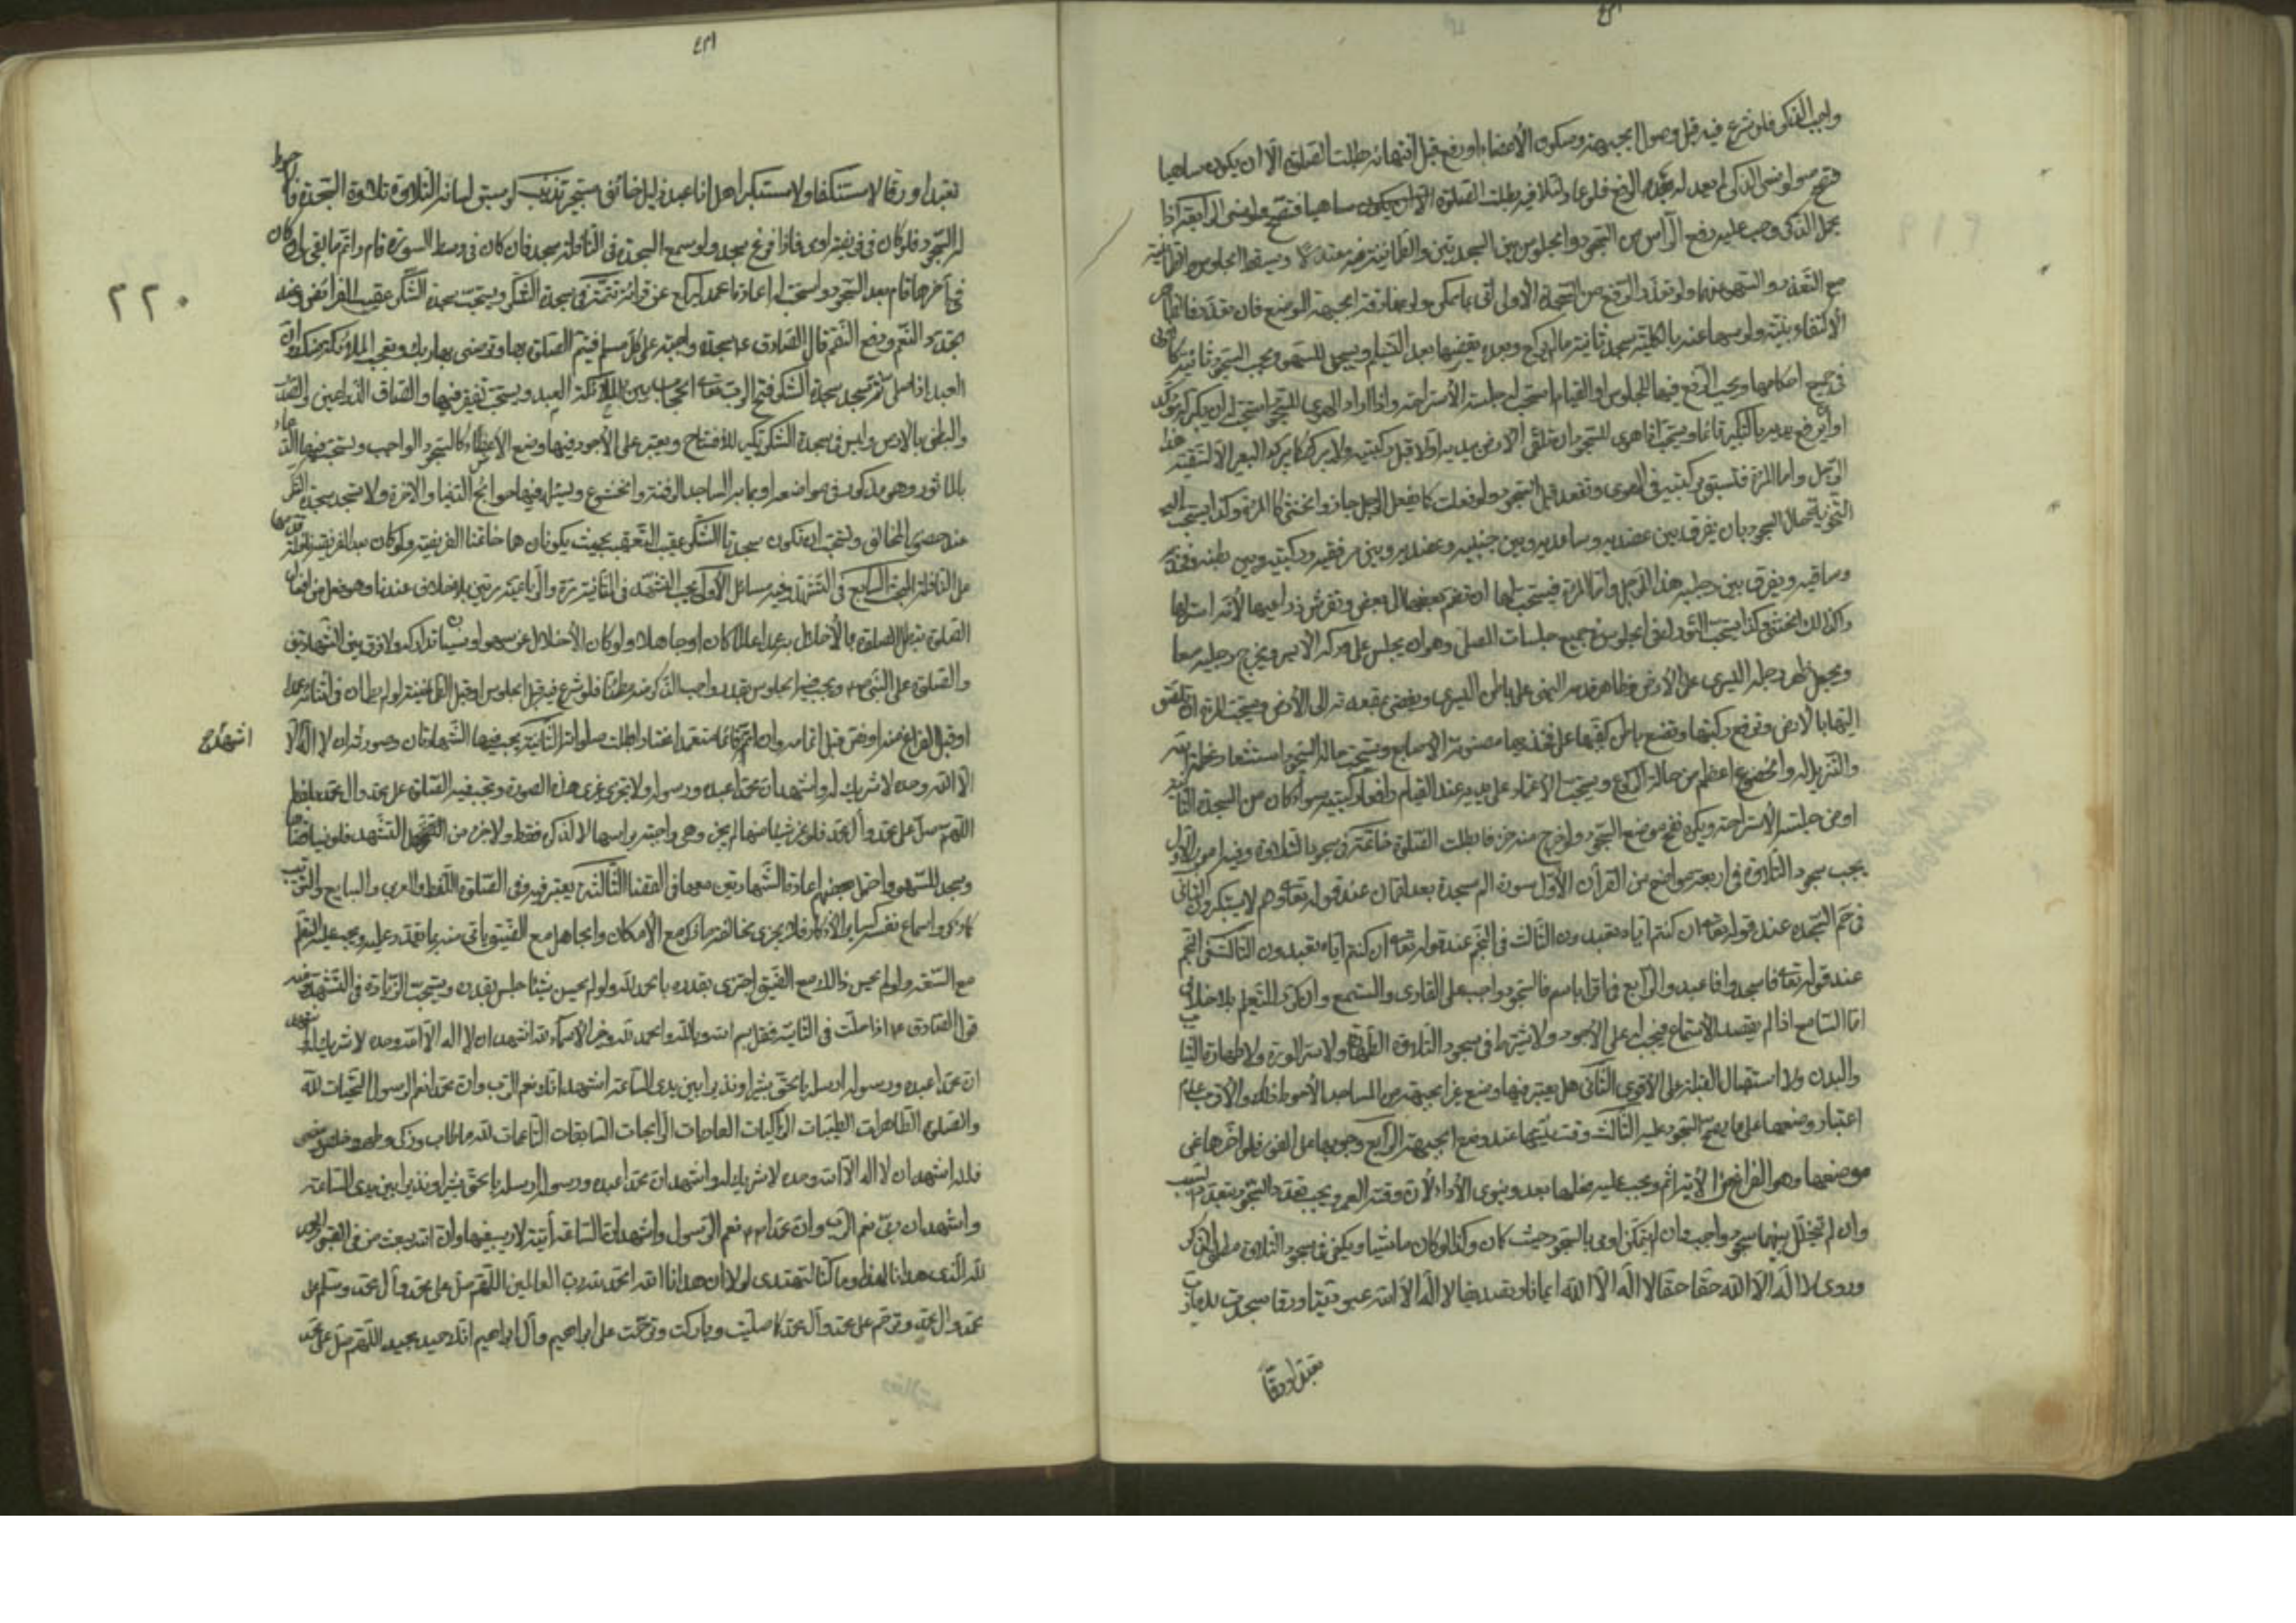 واجب الذكر فلو شرع فيه قبل وصول الجبهة وسكون الأعضاء او رفع قبل انتهائه بطلت الصلوة الا ان يكون ساهيا
فتصح ولو نسى الذكر لم يعد له بعد الرفع فلو عاد لتلافيه بطلت الصلوة الا ان يكون ساهيا فتصح
الذكر وجب عليه رفع الرأس من السجود والجلوس بين السجدتين والطمانينة فيه
مع التعذر ولو تعذر الرفع من السجدة الأولى اتى بما يمكن ولو بمفارقة الجبهة الموضع فان تعذر
الاكتفاء بنيته ولو سها عنه بالكلية سجد ثانية ما لم يركع وبعده يقضيها بعد التسليم ويسجد للسهو ويجب السجود ثانية
في جميع احكامها ويجب الرفع فيها للجلوس او القيام استحب له جلسة الأستراحة واذا اراد الهوى للسجود استحب له ان يكبر
رافع يديه بالتكبير قائما ويستحب اذا هوى للسجود ان يتلقى الارض بيديه اولا قبل ركبتيه ولا يبرك كما يبرك البعير الا لتقية
الرجل واما المرءة فتسبق بركبتيه في الهوى وتقعد قبل السجود ولو فعلت كما يفعل الرجل جاز والخنثى كالمرءة وكذا يستحب
التجزية حال السجود بان يفرق بين عضديه وساعديه وبين جنبيه وعضديه وبين مرفقيه وركبتيه وبين بطنه وفخذيه
وساقيه ويفرق بين رجليه هذا للرجل واما المرءة فيستحب لها ان تضم بعضها الى بعض وتفرش ذراعيها لأنه استر لها
وكذلك الخنثى وكذا يستحب التورك في الجلوس في جميع جلسات المصلى وهو ان يجلس على وركه الايسر ويخرج رجليه معا
ويجعل ظهر رجله اليسرى على الأرض وظاهر قدمه اليمنى على باطن اليسرى ويفضى بمقعدته الى الأرض ويستحب للمرءة ان تلصق
اليتيها بالارض وترفع ركبتها وتضع باطن كفيها على فخذيها مضمومة الاصابع ويستحب حالة السجود استشعار عظمة الله
والتنزيل له والخضوع اعظم من حالة الركوع ويستحب الاعتماد على يديه عند القيام رافعا ركبتيه سواء كان من السجدة الثانية
او من جلسة الاستراحة ويكره نفخ موضع السجود ولو خرج منه حرفان بطلت الصلوة خاتمة في سجود التلاوة وفيه امور الأول
يجب سجود التلاوة في اربعة مواضع من القرآن الأول سورة الم سجدة بعد تمام عند قوله تعالى وهم لا يستكبرون الثاني
في حم السجدة عند قوله تعالى ان كنتم اياه تعبدون الثالث في النجم عند قوله تعالى ان كنتم اياه تعبدون الثالث في النجم
عند قوله تعالى فاسجدوا لله واعبدوا الرابع في اقرا باسم فالسجود واجب على القارى والمستمع وان كرر للتعليم بلا خلاف
اما السامع اذا لم يقصد الأستماع فيجب له على الأجود ولا يشترط في سجود التلاوة الطهارة ولا ستر العورة ولا طهارة الثياب
والبدن ولا استقبال القبلة على الأقوى الثاني هل يعتبر فيها وضع غير الجبهة من المساجد الأحوط ذلك والأقرب عدم
اعتبار وضعها على ما يصح السجود عليه الثالث وقت نيتها عند وضع الجبهة الرابع وجوبها على الفور فلو اخرها عن
موضعها وهو الفراغ من الأية اثم ويجب عليه فعلها بعد وينوى الأداء لأن وقتها العمر ويجب تعدد السجود بتعدد السبب
وان لم يتخلل بينهما سجود واجب وان لم يتمكن اومى بالسجود حيث كان وكذا لو كان ماشيا ويكفى في سجود التلاوة مطلق الذكر
وروى لا اله الا الله حقا حقا لا اله الا الله ايمانا وتصديقا لا اله الا الله عبودية ورقا سجدت لك يا رب
تعبدا ورقا
٢٢٠
تعبدا ورقا لا مستنكفا ولا مستكبرا بل انا عبد ذليل خائف مستجير تذنيب لو سبق لسانه التلاوة تلاوة السجدة فالأحوط
له السجود فلو كان في فريضة اومى فاذا فرغ سجد ولو سمع السجدة في النافلة سجد فان كان في وسط السورة قام واتم ما بقى وان كان
في آخرها قام بعد السجود واستحب له اعادة الحمد ليركع عن قراءة تتمة في سجدة الشكر ويستحب سجدة الشكر عقيب الفرائض وعند
تجدد النعم ودفع النقم قال الصادق ع سجدة واجبة على كل مسلم فيتم الصلوة بها وترضى بها ربك وتعجب الملائكة منك وان
العبد اذا صلى ثم سجد سجدة الشكر فتح الرب تعالى الحجاب بين الملائكة والعبد ويستحب تعفير فيها والصاق الذراعين والصدر
والبطن بالارض وليس في سجدة الشكر تكبير للأفتتاح ويعتبر على الأجود فيها وضع الاعضاء كالسجود الواجب ويستحب فيها الدعاء
بالماثور وهي مذكورة في مواضعه ويسئل فيها حوائج الدنيا والاخرة ولا تسجد سجدة الشكر
عند حضور المخالف ويستحب ان تكون سجدتا الشكر عقيب التعقيب بحيث يكونان هما خاتمتا الفريضة
من النافلة المبحث السابع في التشهد وفيه مسائل الأولى يجب التشهد في الثنائية مرة والرباعية مرتين بلا خلاف عندنا
الصلوة تبطل الصلوة بالأخلال به عمدا عالما كان او جاهلا ولو كان الأخلال عن سهو او نسيان تداركه ولا فرق بين الشهادتين
والصلوة على النبي ص ويجب فيه الجلوس بقدر واجب الذكر منه مطمئنا فلو شرع فيه قبل الجلوس او قبل الطمأنينة
او قبل الفراغ منه او نهض قبل اتمامه وان اتمه قائما متعمدا اختيارا بطلت صلوته الثانية يجب فيها الشهادتان وصورته ان لا اله
اشهد
الا الله وحده لا شريك له واشهد ان محمدا عبده ورسوله ولا يجزى غير هذه الصورة وتجب فيه الصلوة على محمد وال محمد بلفظ
اللهم صل على محمد وآل محمد
ويسجد للسهو واحتمل بعضهم اعادة الشهادتين معها في القضاء الثالثة يعتبر فيه وفي الصلوة اللفظ والعربي والتتابع والترتيب
واسماع نفسه كساير الاذكار فلا يجزى مخالفة ما ذكر مع الأمكان والجاهل مع الضيق ياتى منه بما يقدر عليه ويجب عليه التعلم
مع السعة ولو لم يحسن ذلك مع الضيق اجتزى بقدره بالحمد لله ولو لم يحسن شيئا جلس بقدره ويستحب الزيادة في التشهد
قول الصادق ع اذا جلست في الثانية فقل بسم الله وبالله والحمد لله وخير الأسماء لله اشهد ان لا اله الا الله وحده لا شريك له
ان محمدا عبده ورسوله ارسله بالحق بشيرا ونذيرا بين يدى الساعة اشهد انك نعم الرب وان محمدا نعم الرسول التحيات لله
والصلوات الطاهرات الطيبات الزاكيات الغاديات الرائحات السابغات الناعمات لله ما طاب وزكى وطهر وخلص وصفى
فلله اشهد ان لا اله الا الله وحده لا شريك له واشهد ان محمدا عبده ورسوله ارسله بالحق بشيرا ونذيرا بين يدى الساعة
واشهد ان ربى نعم الرب وان محمدا نعم الرسول واشهد ان الساعة آتية لا ريب فيها وان الله يبعث من في القبور الحمد
لله الذى هدانا لهذا وما كنا لنهتدى لولا ان هدانا الله الحمد لله رب العالمين اللهم صل على محمد وآل محمد وسلم على
محمد وال محمد وترحم على محمد وآل محمد كما صليت وباركت وترحمت على ابراهيم وآل ابراهيم انك حميد مجيد اللهم صل على محمد